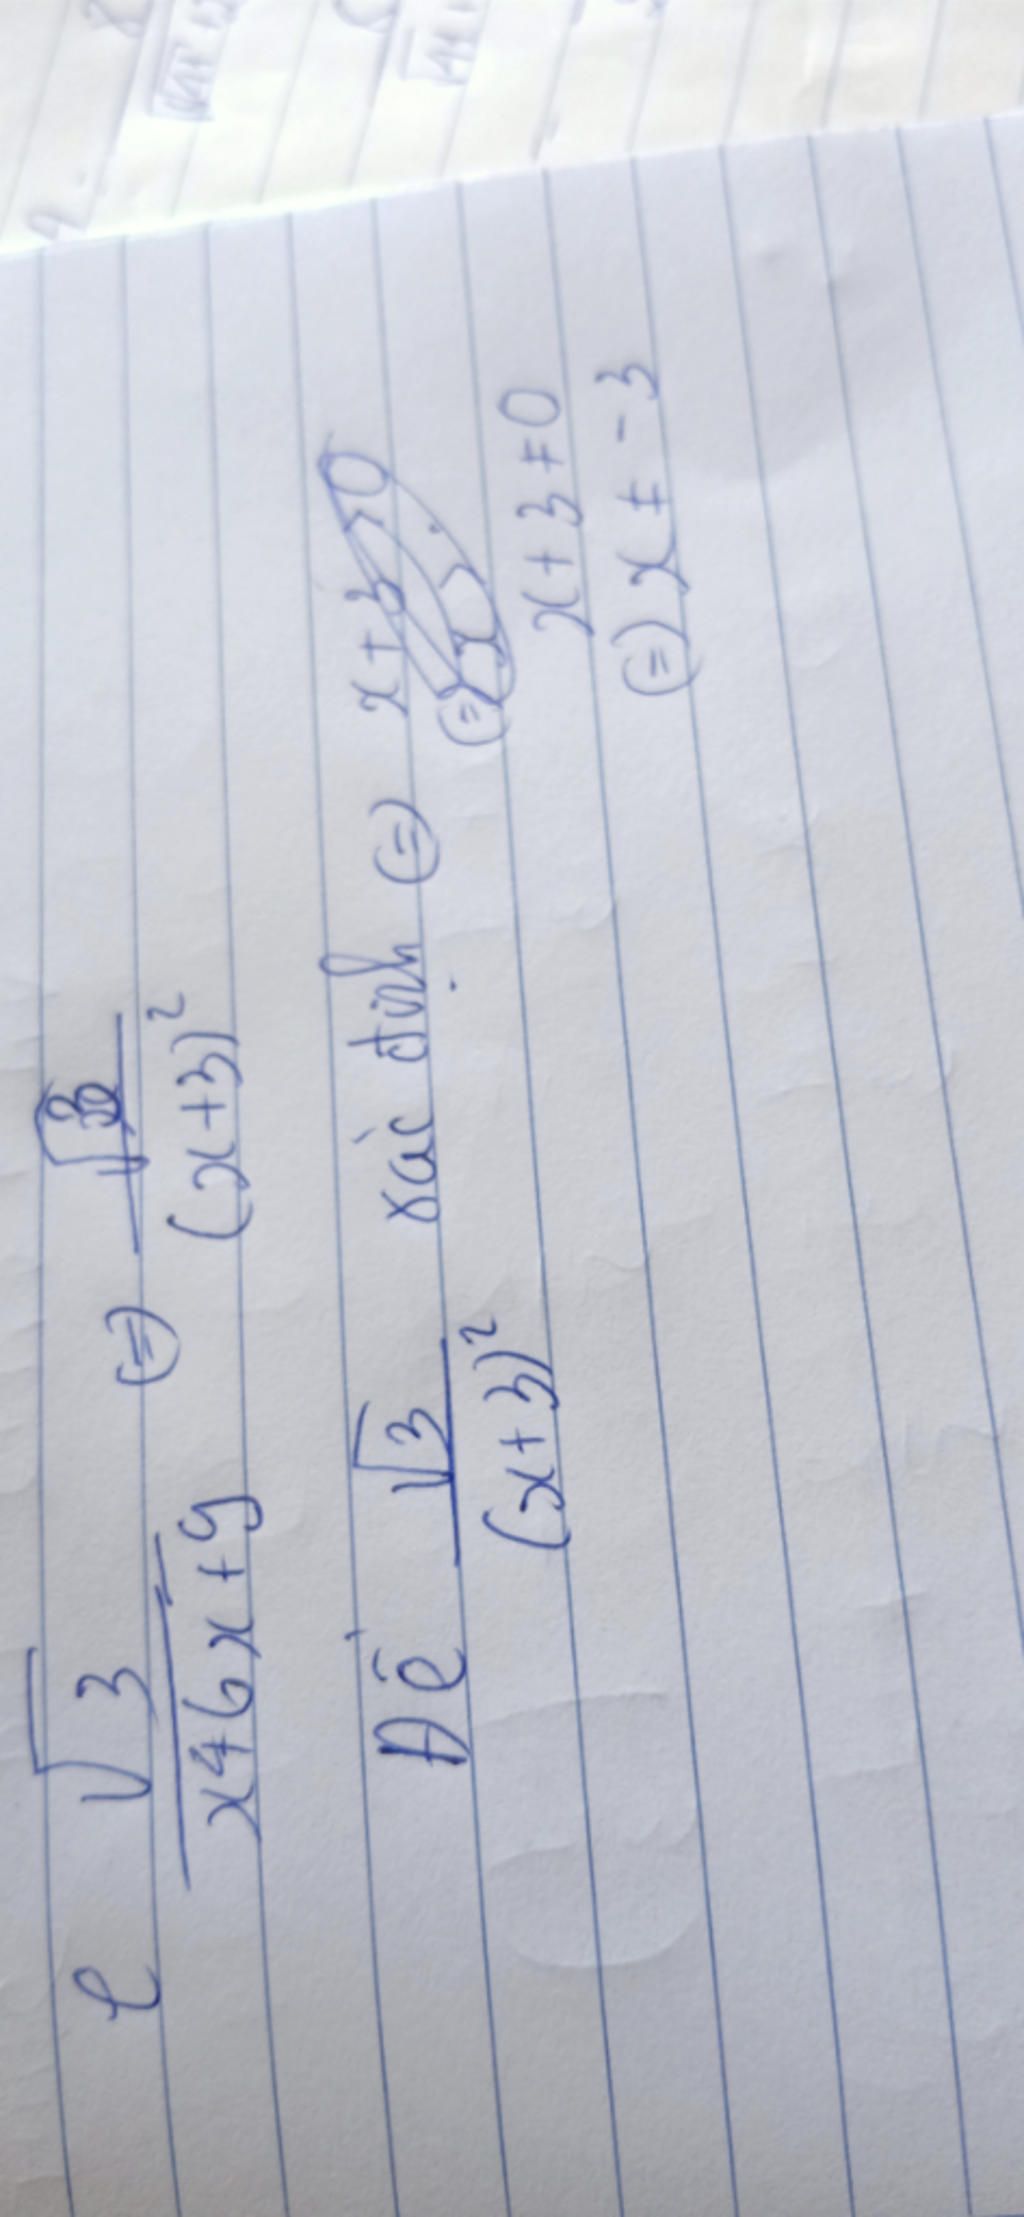 e √3 / x+6x+9 (=) √3 / (x+3)²
Để √3 / (x+3)² xác định (=) x+3>0
(=) x>
x+3≠0
(=) x ≠ -3